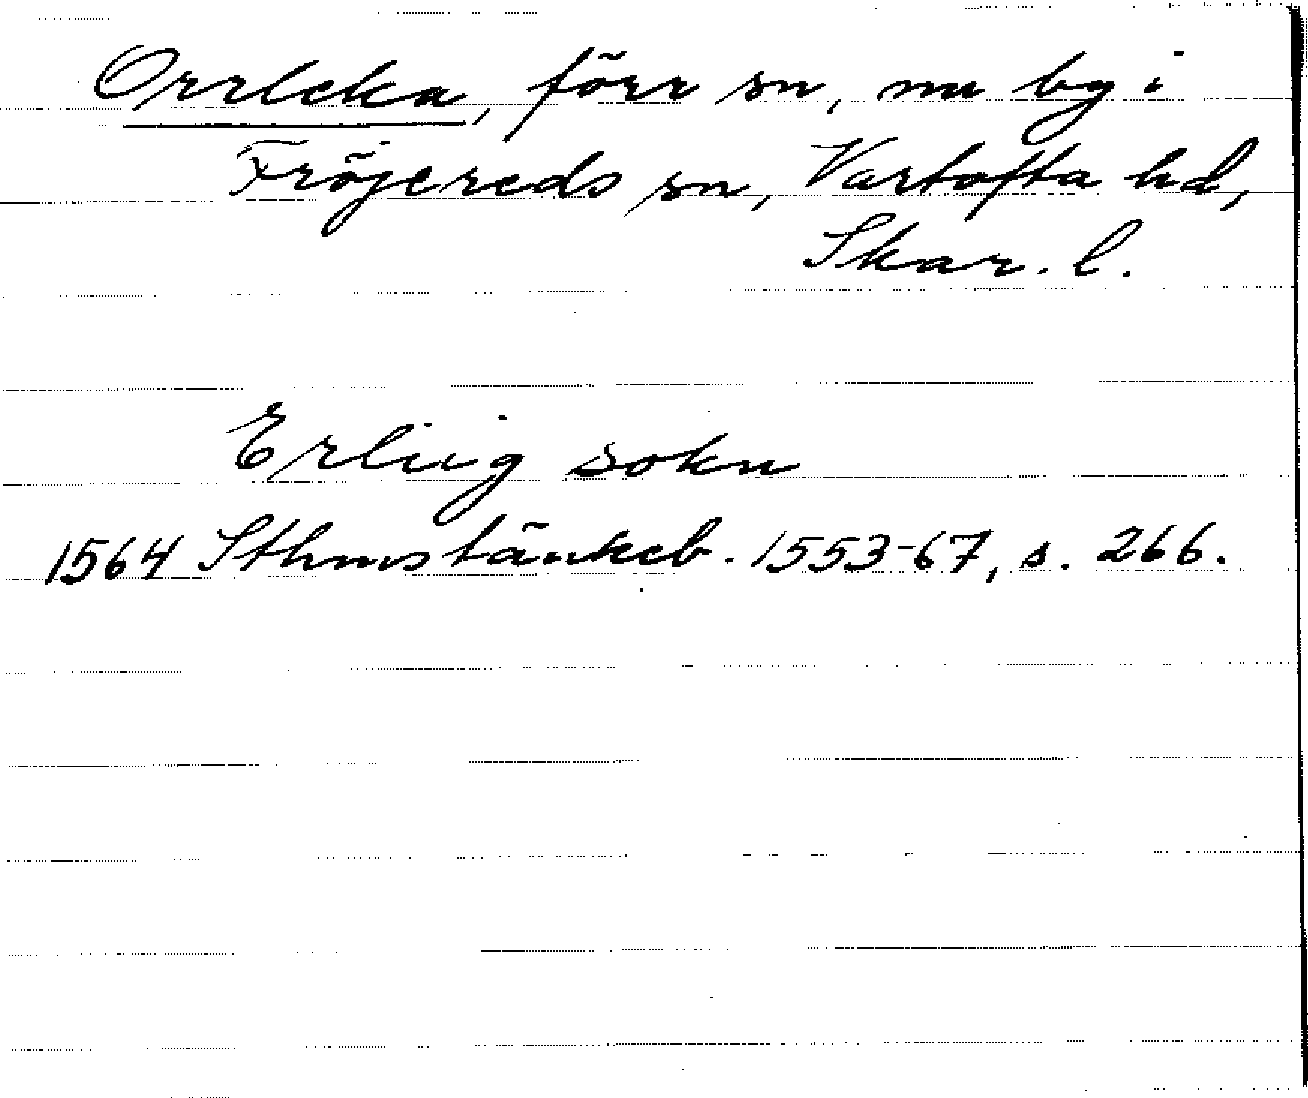 Orrleka, förr sn, nu by i
Fröjereds sn, Vartofta hd,
Skar. l.
Erliig sokn
1564 Sthms tänkeb. 1553-67, s. 266.